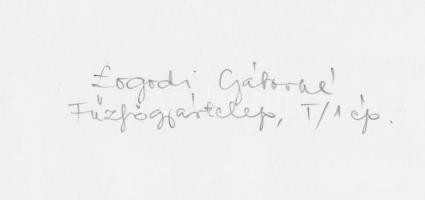 Zogodi Gáborné
Fűzfőgyártelep, T/1 ép.